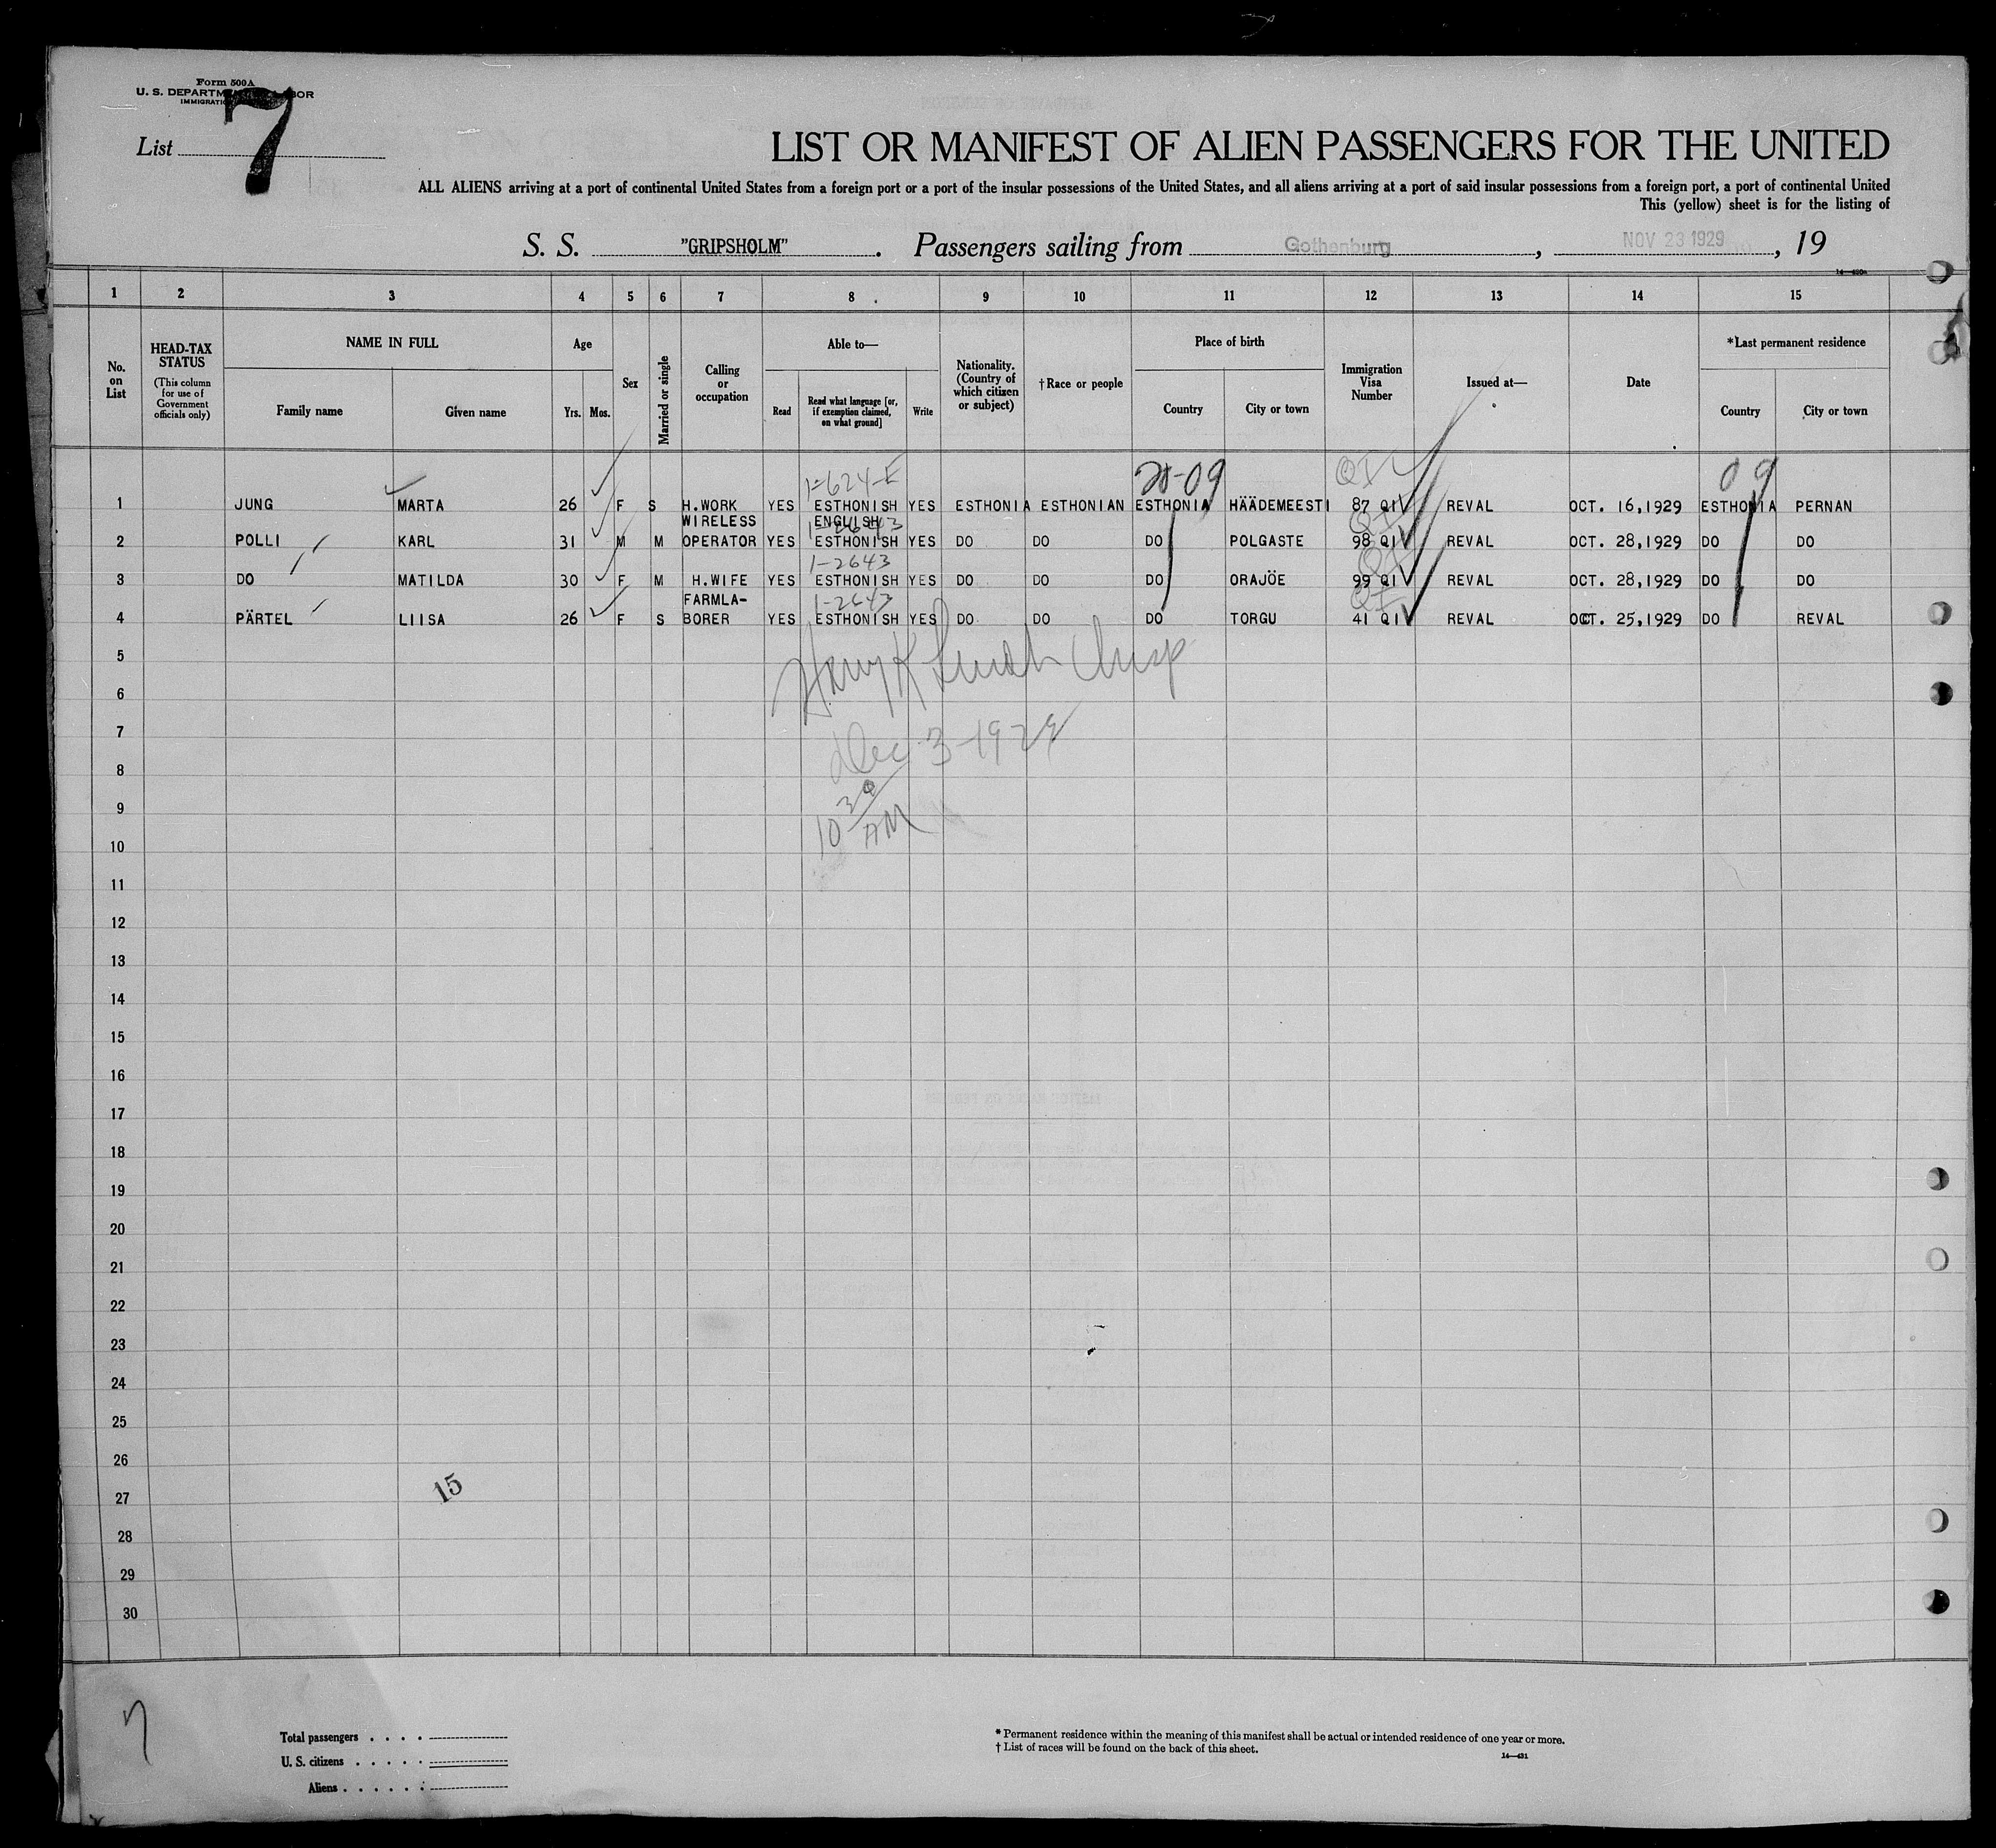 Form 500A
U. S. DEPARTM
IMMIGRATIO
List 7
LIST OR MANIFEST OF ALIEN PASSENGERS FOR THE UNITED
ALL ALIENS arriving at a port of continental United States from a foreign port or a port of the insular possessions of the United States, and all aliens arriving at a port of said insular possessions from a foreign port, a port of continental United
This (yellow) sheet is for the listing of
S. S. "GRIPSHOLM". Passengers sailing from Gothenburg, NOV 23 1929, 19
1 2 3 4 5 6 7 8 9 10 11 12 13 14 15
No. on List
HEAD-TAX STATUS (This column for use of Government officials only)
NAME IN FULL
Family name Given name
Age
Yrs. Mos.
Sex
Married or single
Calling or occupation
Able to—
Read Read what language [or, if exemption claimed, on what ground] Write
Nationality. (Country of which citizen or subject)
† Race or people
Place of birth
Country City or town
Immigration Visa Number
Issued at—
Date
* Last permanent residence
Country City or town
1-624-E 09
1 JUNG MARTA 26 F S H.WORK YES ESTHONISH YES ESTHONIA ESTHONIAN ESTHONIA HÄÄDEMEESTI 87 QI REVAL OCT. 16,1929 ESTHONIA PERNAN
WIRELESS ENGLISH
2 POLLI KARL 31 M M OPERATOR YES ESTHONISH YES DO DO DO POLGASTE 98 QI REVAL OCT. 28,1929 DO DO
1-2643
3 DO MATILDA 30 F M H.WIFE YES ESTHONISH YES DO DO DO ORAJÖE 99 QI REVAL OCT. 28,1929 DO DO
FARMLA- 1-2643
4 PÄRTEL LIISA 26 F S BORER YES ESTHONISH YES DO DO DO TORGU 41 QI REVAL OCT. 25,1929 DO REVAL
5
6
7
Dec 3-1929
8
9
10 30 AM
10
11
12
13
14
15
16
17
18
19
20
21
22
23
24
25
26
15
27
28
29
30
7
Total passengers
U. S. citizens
Aliens
* Permanent residence within the meaning of this manifest shall be actual or intended residence of one year or more.
† List of races will be found on the back of this sheet.
14—431